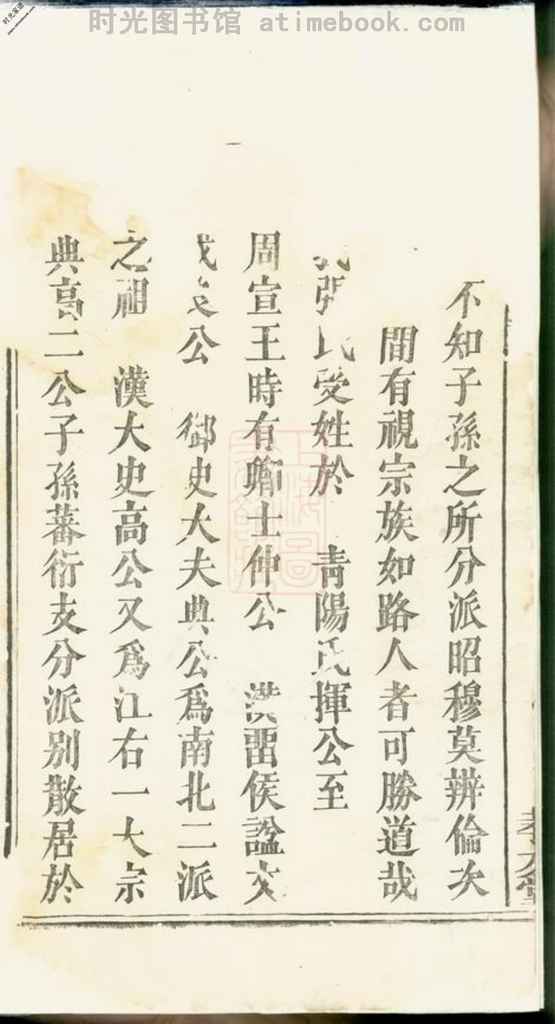 时光图书馆 - atimebook.com
不知子孫之所分派昭穆莫辨倫次
間有視宗族如路人者可勝道哉
張氏受姓於 青陽氏揮公至
周宣王時有卿士仲公 漢留侯諡文
成良公 御史大夫典公爲南北二派
之祖 漢大史高公又爲江右一大宗
典高二公子孫蕃衍支分派別散居於